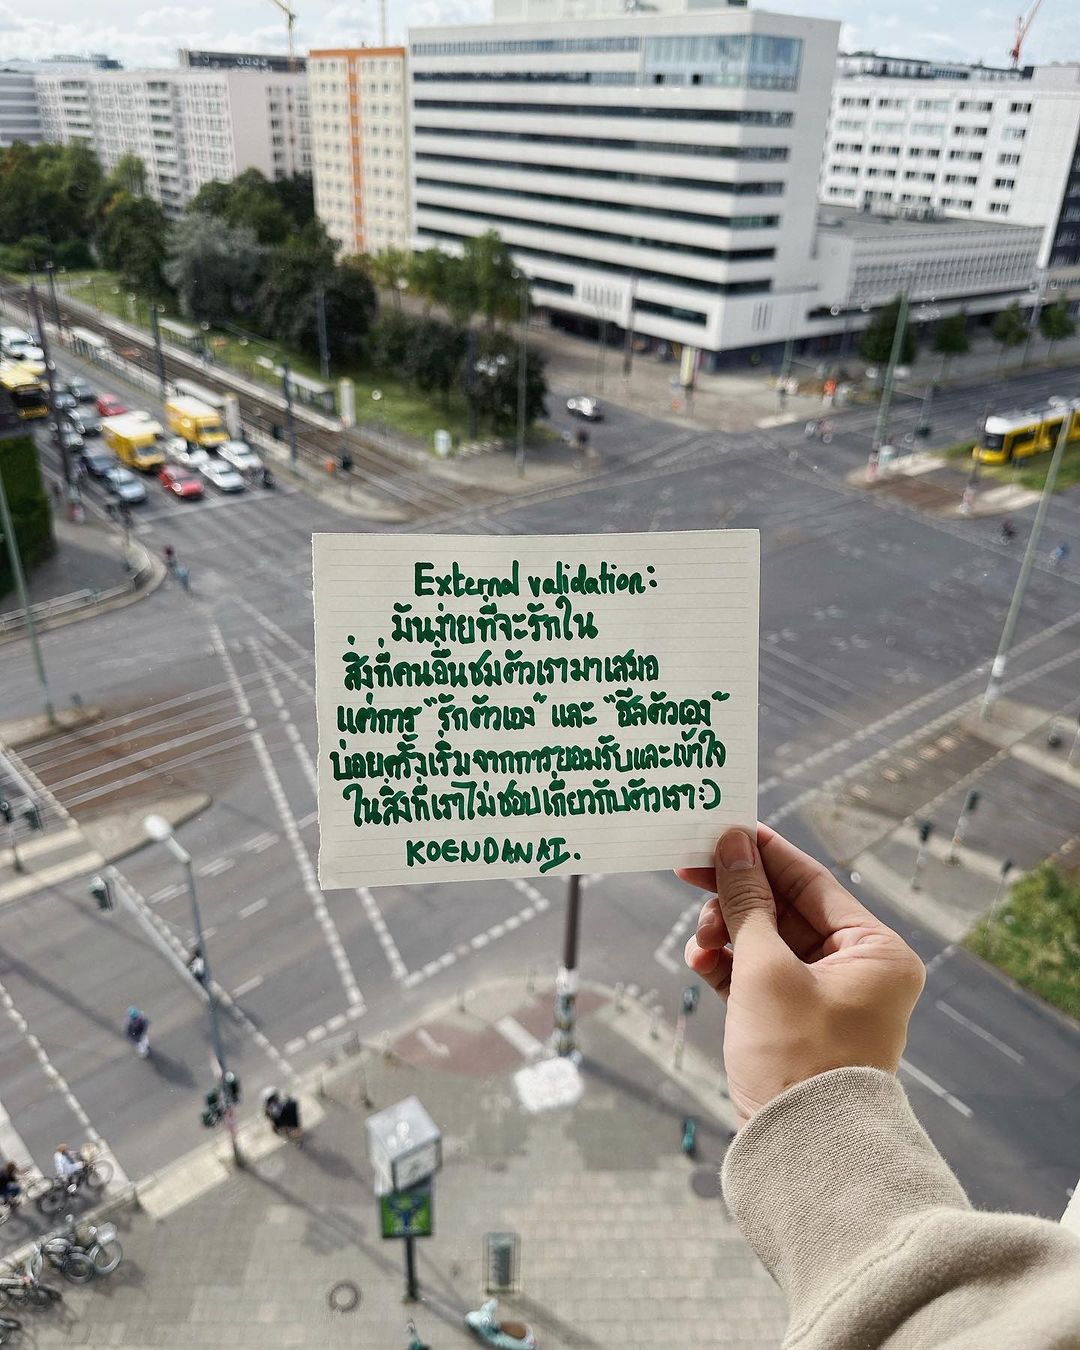 External validation:
มันง่ายที่จะรักใน
สิ่งที่คนอื่นชมตัวเรามาเสมอ
แต่การ "รักตัวเอง" และ "ฮีลตัวเอง"
บ่อยครั้งเริ่มจากการยอมรับและเข้าใจ
ในสิ่งที่เราไม่ชอบเกี่ยวกับตัวเรา:)
KOENDANAI.